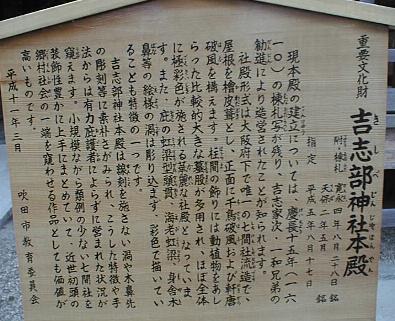 重要文化財
吉志部神社本殿
きしべじんじゃほんでん
附棟札 寛永四年八月二八日 銘
天保二年五月 銘
指定 平成五年八月十七日
現本殿の建立については、慶長十五年(一六
一〇)の棟札写が残り、吉志家次、一和兄弟の
勧進により造営されたことが知られます。
社殿形式は大阪府下で唯一の七間社流造で
屋根を檜皮葺とし、正面に千鳥破風および軒唐
破風を構えます。柱間の飾りには動植物をあし
らった比較的大きな蟇股が多用され、ほぼ全体
に極彩色が施される華麗な社殿となっていま
す。また、庇の虹梁型頭貫、海老虹梁、身舎木
鼻等の絵様の渦は彫り込まず、彩色で描いてい
ることも特徴の一つです。
吉志部神社本殿は線刻を施さない渦や木鼻先
の彫刻等に素朴さがみられ、こうした特徴や手
法からは有力庇護者によらずに営まれた状況が
窺えます。小規模ながら類例の少ない七間社を
装飾性豊かに上手にまとめていて、近世初頭の
郷村社会の一端を窺わせる作品としても価値が
高いものです。
平成十一年三月
吹田市教育委員会